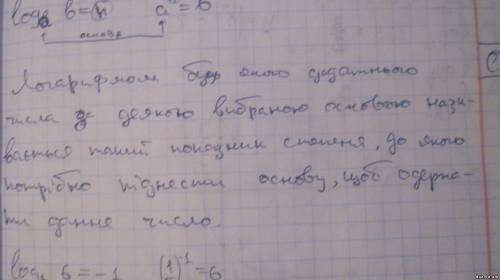 log_a b = n    a^n = b
основа
Логарифмом будь якого додатнього
числа за деякою вибраною основою нази-
вається такий показник степеня, до якого
потрібно піднести основу, щоб одержа-
ти данне число.
b = -1    = 6